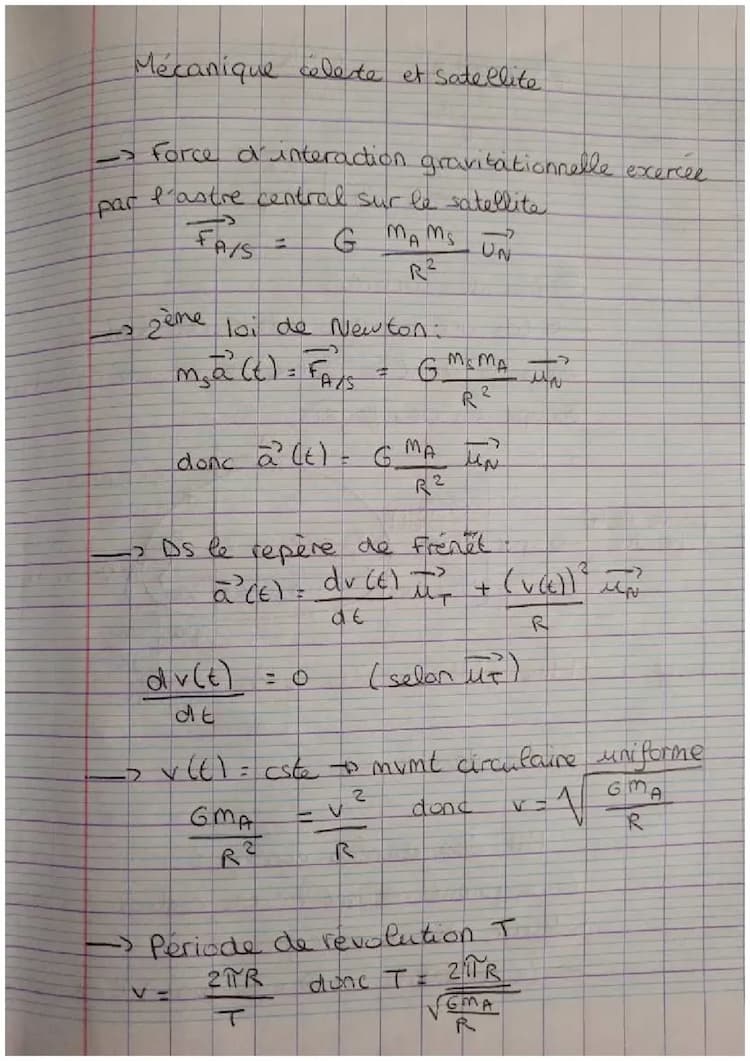 Mécanique céleste et satellite
→ Force d'interaction gravitationnelle exercée
par l'astre central sur le satellite
$\vec{F_{A/S}} = G \frac{m_A m_S}{R^2} \vec{U_N}$
→ 2ème loi de Newton:
$m_S \vec{a}(t) = \vec{F_{A/S}} = G \frac{m_S m_A}{R^2} \vec{u_N}$
donc $\vec{a}(t) = G \frac{m_A}{R^2} \vec{u_N}$
→ Ds le repère de Frénêt :
$\vec{a}(t) = \frac{dv(t)}{dt} \vec{u_T} + \frac{(v(t))^2}{R} \vec{u_N}$
$\frac{dv(t)}{dt} = 0$ (selon $\vec{u_T}$)
→ v(t) = cste → mvmt circulaire uniforme
$\frac{G m_A}{R^2} = \frac{v^2}{R}$ donc $v = \sqrt{\frac{G m_A}{R}}$
→ Période de révolution T
$v = \frac{2\pi R}{T}$ donc $T = \frac{2\pi R}{\sqrt{\frac{G m_A}{R}}}$